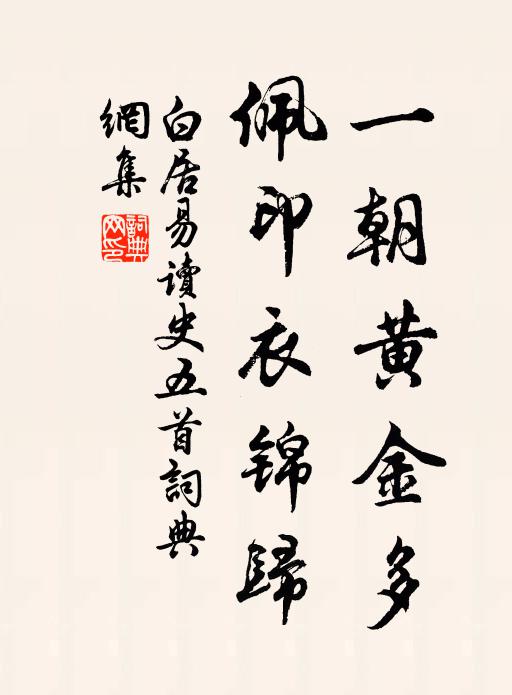 一朝黄金多
佩印衣锦歸
白居易讀史五首詞典
網集
詞典网印